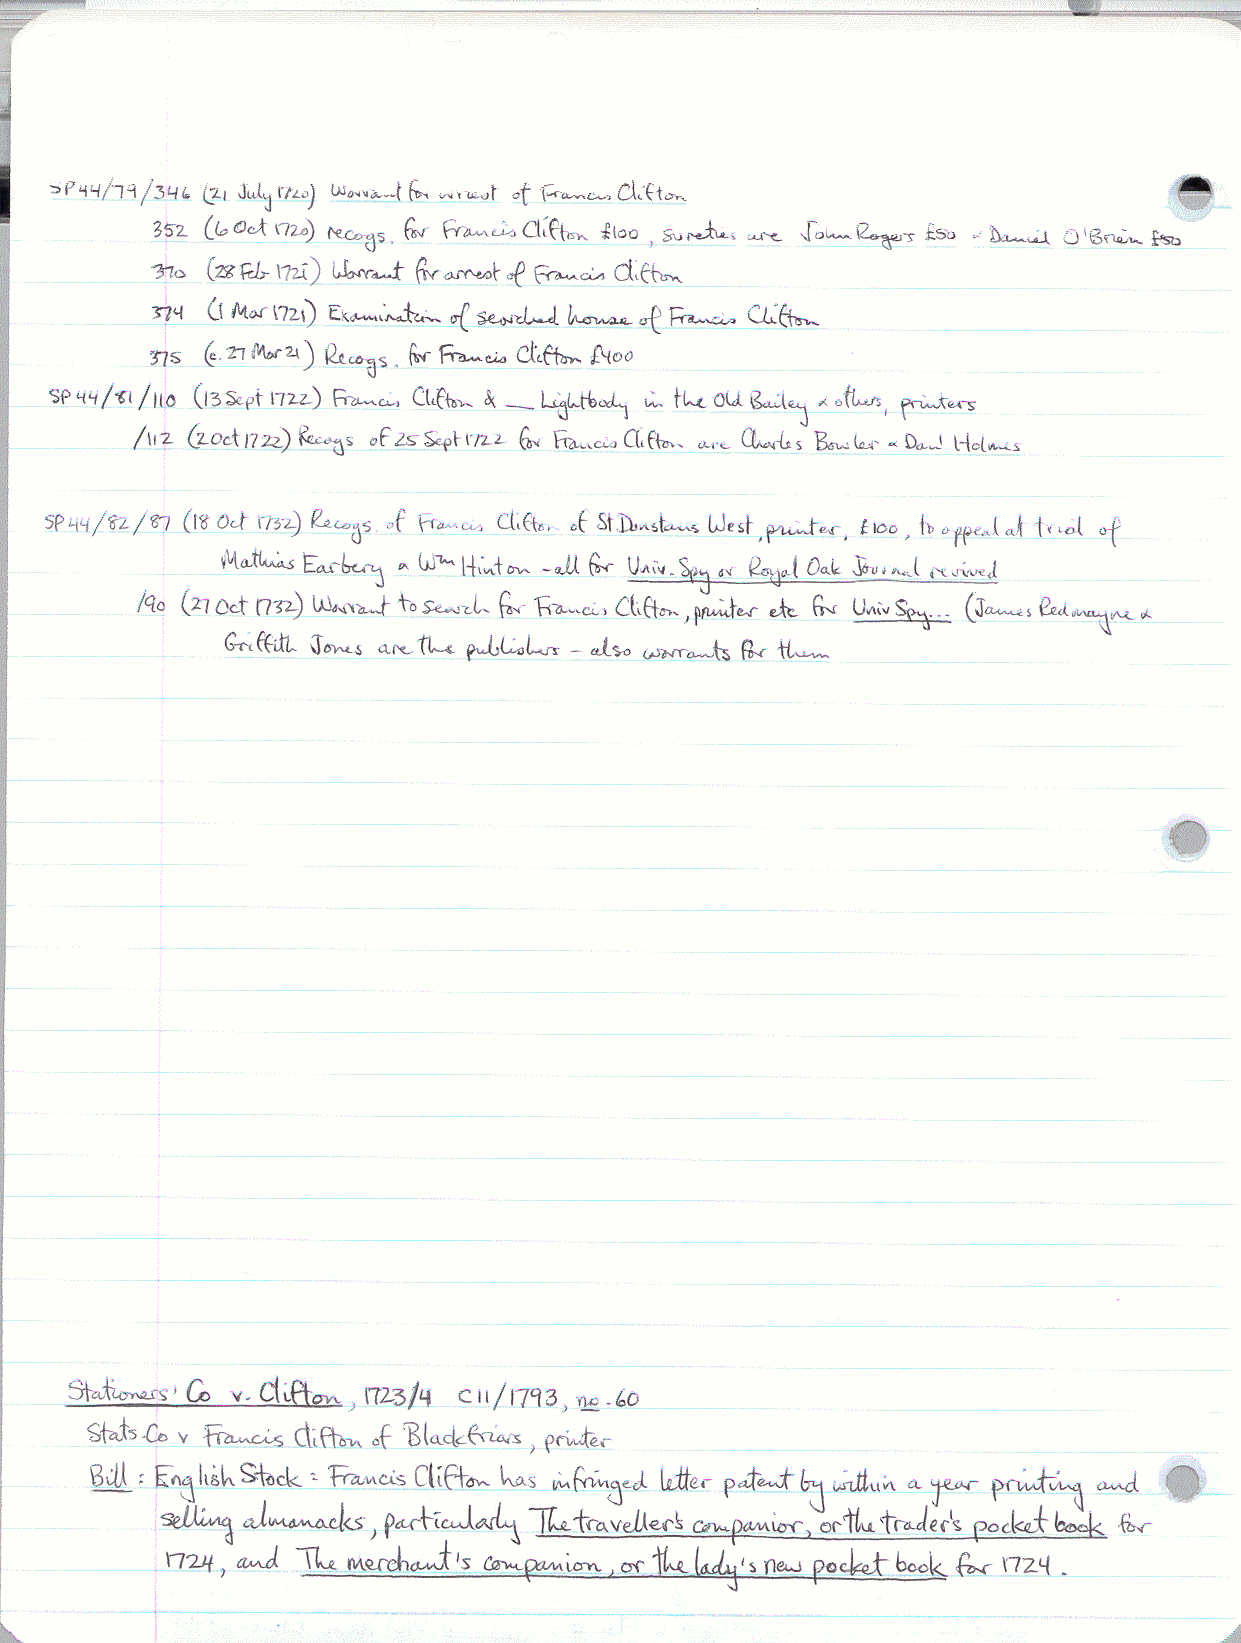 SP44/79/346 (21 July 1720) Warrant for arrest of Francis Clifton
352 (6 Oct 1720) recogs. for Francis Clifton £100, sureties are John Rogers £50 & Daniel O'Brien £50
370 (28 Feb 1721) Warrant for arrest of Francis Clifton
374 (1 Mar 1721) Examination of searched house of Francis Clifton
375 (c. 27 Mar 21) Recogs. for Francis Clifton £400
SP44/81/110 (13 Sept 1722) Francis Clifton & __ Lightbody in the Old Bailey & others, printers
/112 (2 Oct 1722) Recogs of 25 Sept 1722 for Francis Clifton are Charles Bowler & Danl Holmes
SP44/82/87 (18 Oct 1732) Recogs. of Francis Clifton of St Dunstans West, printer, £100, to appeal at trial of
Mathias Earbery & Wm Hinton - all for Univ. Spy or Royal Oak Journal revived
/90 (27 Oct 1732) Warrant to search for Francis Clifton, printer etc for Univ Spy... (James Redmayne &
Griffith Jones are the publishers - also warrants for them
Stationers' Co v. Clifton, 1723/4 C11/1793, no. 60
Stats. Co v Francis Clifton of Blackfriars, printer
Bill: English Stock: Francis Clifton has infringed letter patent by within a year printing and
selling almanacks, particularly The traveller's companior, or the trader's pocket book for
1724, and The merchant's companion, or the lady's new pocket book for 1724.